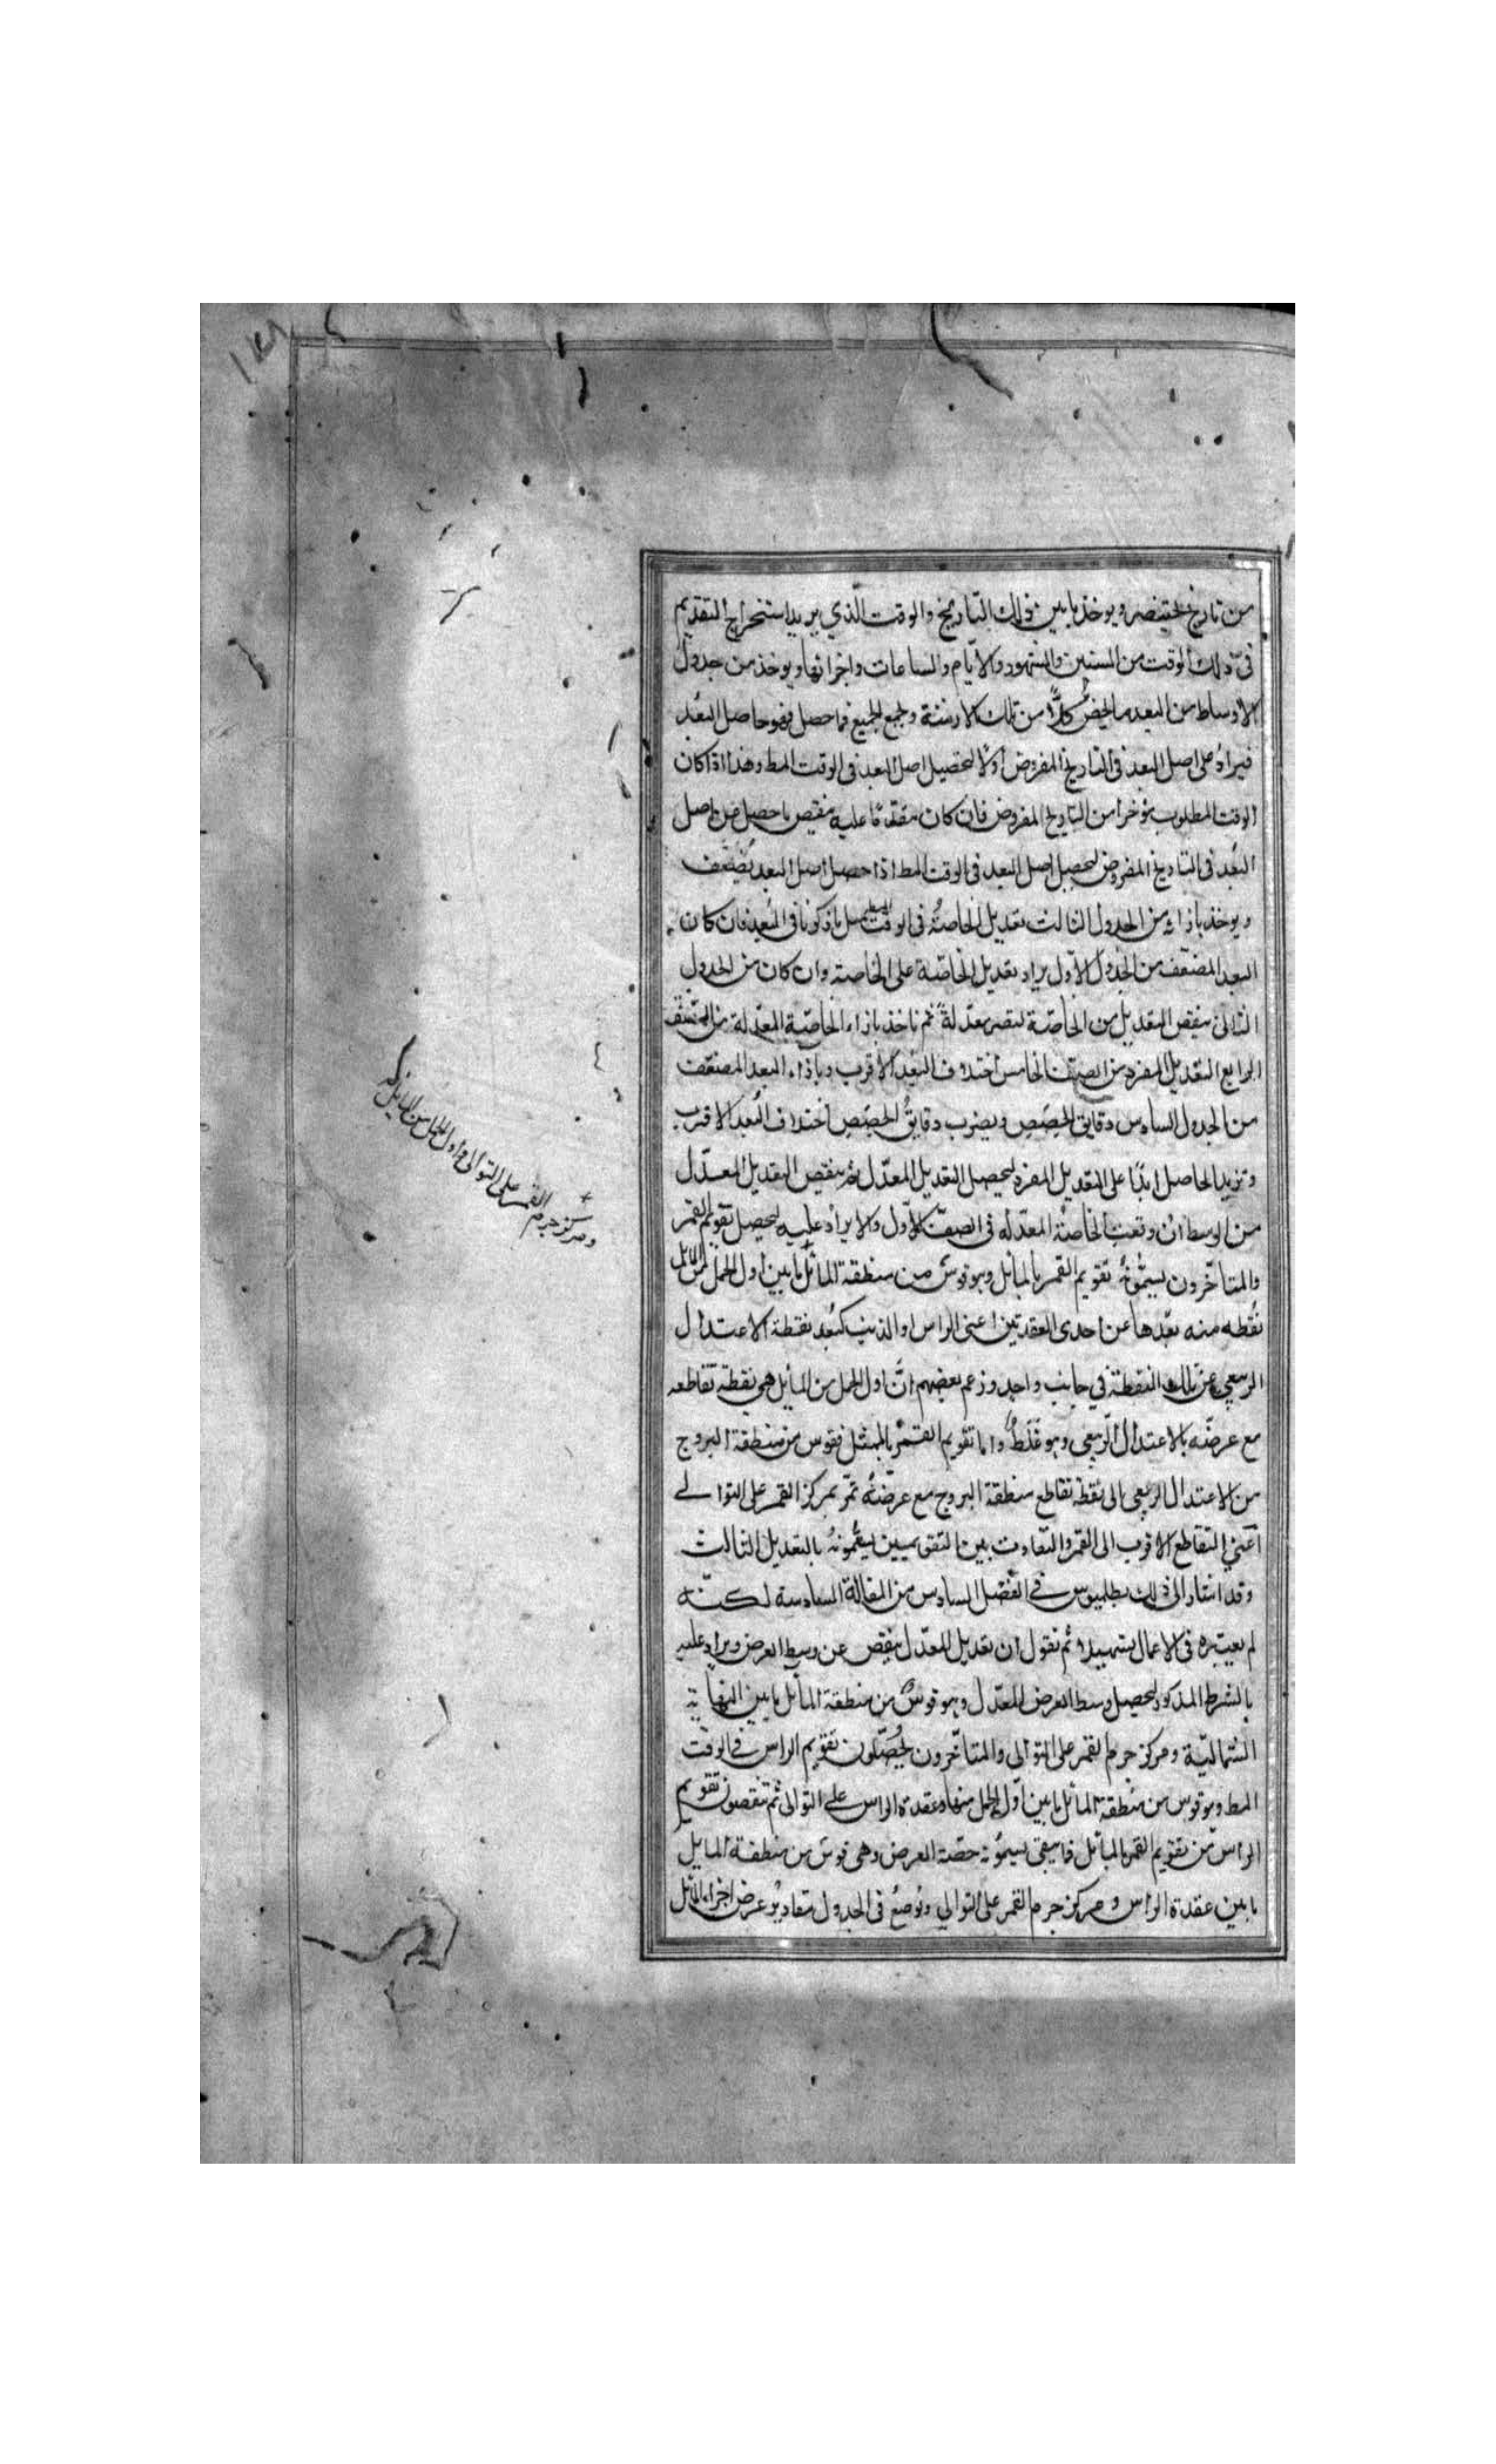 من تاريخ بختنصر ويوخذ ما بين ذلك التاريخ والوقت الذي يريد استخراج التقويم
في ذلك الوقت من السنين والشهور والايام والساعات واجزائها ويوخذ من جدول
الاوساط من البعد ما يخص كلاً من تلك الازمنة ويجمع الجميع فما حصل فهو حاصل البعد
فيزاد على اصل البعد في التاريخ المفروض اولاً ليحصل اصل البعد في الوقت المط وهذا اذا كان
الوقت المطلوب مؤخرا من التاريخ المفروض فان كان متقدماً عليه ينقص ما حصل من اصل
البعد في التاريخ المفروض ليحصل اصل البعد في الوقت المط اذا حصل اصل البعد يضعف
ويوخذ بازائه من الجدول الثالث تعديل الخاصة في الوقت ما ذكرنا في البعد فان كان
البعد المضعف من الجدول الاول يزاد تعديل الخاصة على الخاصة وان كان من الجدول
الثاني ينقص التعديل من الخاصة لتصير معدلة ثم ناخذ بازاء الخاصية المعدلة من الصف
الرابع التعديل المفرد من الصف الخامس اختلاف البعد الاقرب وبازاء البعد المضعف
من الجدول السادس دقايق الحصص ويضرب دقايق الحصص اختلاف البعد الاقرب
وتزيد الحاصل ابدًا على التعديل المفرد ليحصل التعديل المعدل ثم ينقص التعديل المعدل
من الوسط ان وقعت الخاصة المعدله في الصف الاول والا يزاد عليه ليحصل تقويم القمر
والمتاخرون يسمونه تقويم القمر بالمائل وهو قوس من منطقة المائل ما بين اول الحمل من المائل
نقطه منه بعدها عن احدى العقدتين اعني الراس او الذنب كبعد نقطة الاعتدال
الربيعي عن تلك النقطة في جانب واحد وزعم بعضهم ان اول الحمل من المايل هي نقطة تقاطعه
مع عرضه بالاعتدال الربيعي وهو غلط واما تقويم القمر بالممثل فقوس من منطقة البروج
من الاعتدال الربيعي الى نقطة تقاطع منطقة البروج مع عرضه تمر بمركز القمر على التوالي
اعني التقاطع الاقرب الى القمر والتفاوت بين التقويمين يسمونه بالتعديل الثالث
وقد اشار الى ذلك بطلميوس في الفصل السادس من المقالة السادسة لكنه
لم يعتبره في الاعمال ثم نقول ان تعديل المعدل ينقص عن وسط العرض ويزاد عليه
بالشرط المذكور ليحصل وسط العرض المعدل وهو قوس من منطقة المائل ما بين النهاية
الشمالية ومركز جرم القمر على التوالي والمتاخرون يحصلون تقويم الراس في الوقت
المط وهو قوس من منطقة المائل ما بين اول الحمل منها وعقدة الراس على التوالي ثم ينقصون تقويم
الراس من تقويم القمر بالمائل فما يبقى يسمونه حصة العرض وهي قوس من منطقة المايل
ما بين عقدة الراس ومركز جرم القمر على التوالي ونوضع في الجدول مقادير عرض اجزاء المائل
ومركز جرم
القمر على التوالي واول الحمل من المايل